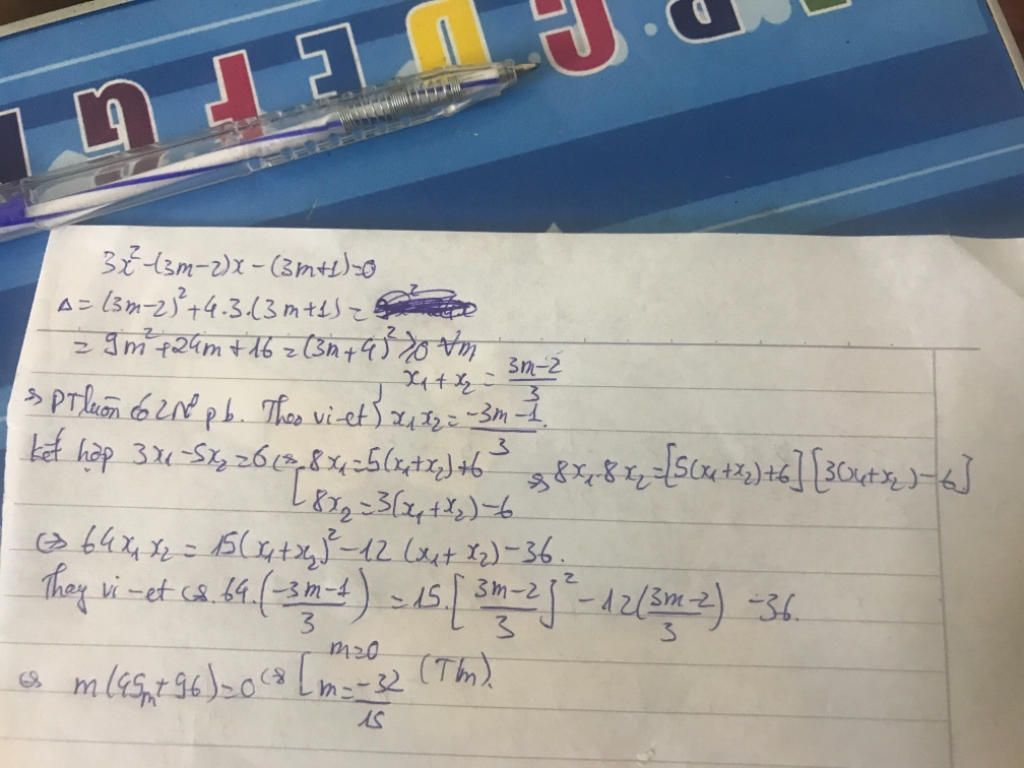 3x² - (3m-2)x - (3m+1) = 0
Δ = (3m-2)² + 4.3.(3m+1) =
= 9m² + 24m + 16 = (3m+4)² ≥ 0 ∀m
=> PT luôn có 2 N° pb. Theo vi-et { x₁ + x₂ = (3m-2)/3
x₁x₂ = (-3m-1)/3.
Kết hợp 3x₁ - 5x₂ = 6 <=> [ 8x₁ = 5(x₁+x₂)+6
8x₂ = 3(x₁+x₂)-6
=> 8x₁.8x₂ = [5(x₁+x₂)+6][3(x₁+x₂)-6]
<=> 64x₁x₂ = 15(x₁+x₂)² - 12(x₁+x₂) - 36.
Thay vi-et <=> 64.((-3m-1)/3) = 15.[(3m-2)/3]² - 12((3m-2)/3) - 36.
<=> m(45m+96) = 0 <=> [ m=0
m = -32/15 (Tm).
G F E D C B